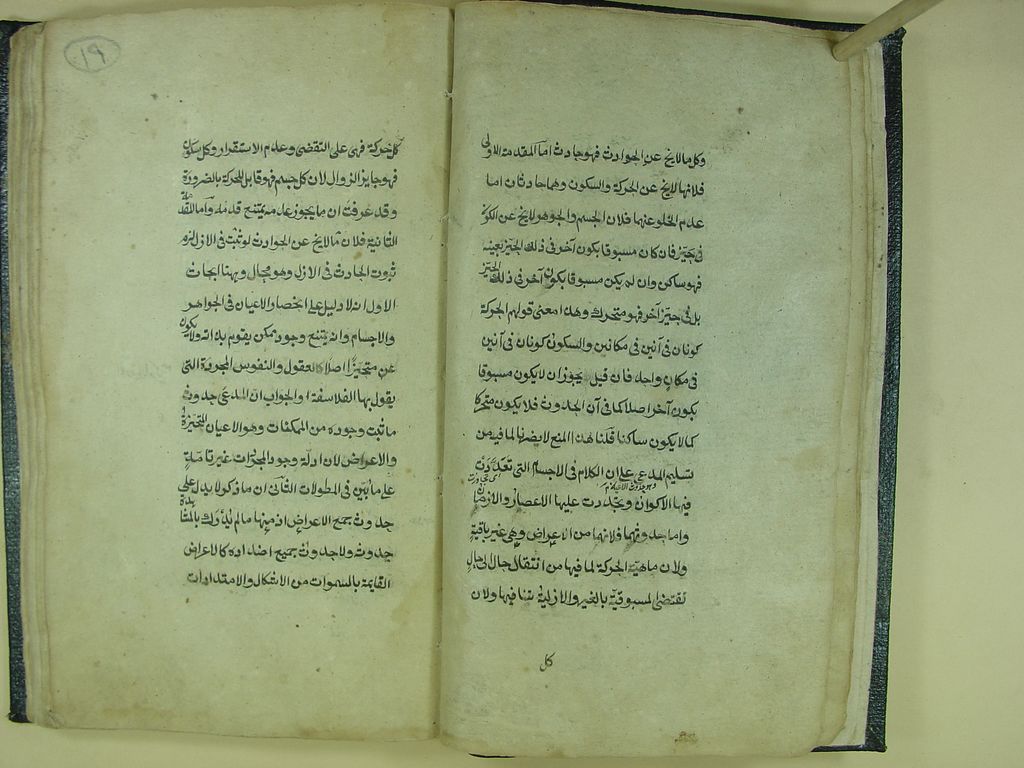 وكل ما لا يخ عن الحوادث فهو حادث اما المقدمة الاولى
فلانها لا يخ عن الحركة والسكون وهما حادثان اما
عدم الخلو عنهما فلان الجسم والجوهر لا يخ عن الكون
فى حيز فان كان مسبوقا بكون آخر فى ذلك الحيز بعينه
فهو ساكن وان لم يكن مسبوقا بكون آخر فى ذلك الحيز
بل فى حيز آخر فهو متحرك وهذا معنى قولهم الحركة
كونان فى آنين فى مكانين والسكون كونان فى آنين
فى مكان واحد فان قيل يجوز ان لا يكون مسبوقا
بكون آخر اصلا كما فى آن الحدوث فلا يكون متحركا
كما لا يكون ساكنا قلنا هذا المنع لا يضرنا لما فيه من
تسليم المدعى على ان الكلام فى الاجسام التى تعددت
فيها الاكوان وتجددت عليها الاعصار والازمان
واما حدوثهما فلانهما من الاعراض وهى غير باقية
ولان ماهية الحركة لما فيها من انتقال حال الى حال
تقتضى المسبوقية بالغير والازلية تنافيها ولان
كل
١٩
كل حركة فهى على التقضى وعدم الاستقرار وكل سكون
فهو جايز الزوال لان كل جسم فهو قابل للحركة بالضرورة
وقد عرفت ان ما يجوز عدمه يمتنع قدمه واما المقدمة
الثانية فلان ما لا يخ عن الحوادث لو ثبت فى الازل لزم
ثبوت الحادث فى الازل وهو محال وههنا ابحاث
الاول انه لا دليل على انحصار الاعيان فى الجواهر
والاجسام وانه يمتنع وجود ممكن يقوم بذاته ولا يكون
عن متحيزا اصلا كالعقول والنفوس المجردة التى
يقول بها الفلاسفة والجواب ان المدعى حدوث
ما ثبت وجوده من الممكنات وهو الاعيان المتحيزة
والاعراض لان ادلة وجود المجردات غير تامة
على ما بين فى المطولات الثانى ان ما ذكر لا يدل على
حدوث جميع الاعراض اذ منها ما لم يدرك بالمشاهدة
حدوثه ولا حدوث جميع اضداده كالاعراض
القايمة بالسموات من الاشكال والامتدادات